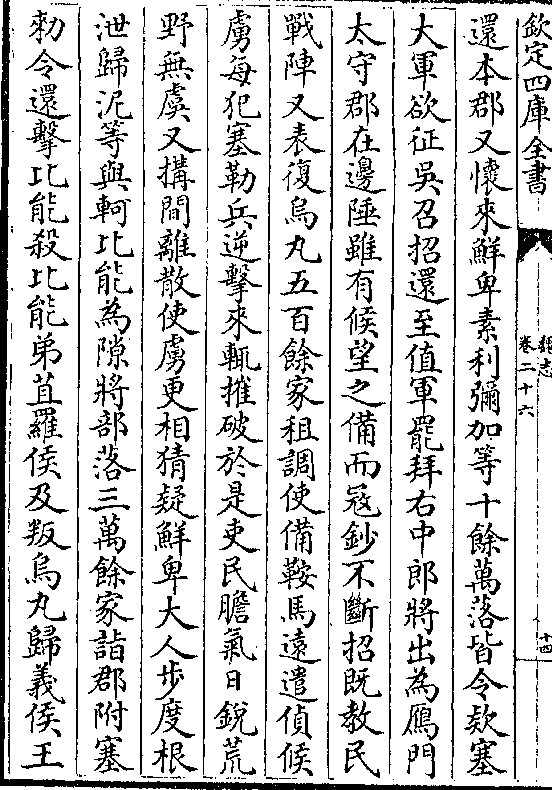 欽定四庫全書
魏志
卷二十六
十四
還本郡又懷來鮮卑素利彌加等十餘萬落皆令欵塞
大軍欲征吳召招還至值軍罷拜右中郎將出為鴈門
太守郡在邊陲雖有候望之備而寇鈔不斷招既教民
戰陣又表復烏丸五百餘家租調使備鞍馬遠遣偵候
虜每犯塞勒兵逆擊來輒摧破於是吏民膽氣日銳荒
野無虞又搆間離散使虜更相猜疑鮮卑大人步度根
泄歸泥等與軻比能為隙將部落三萬餘家詣郡附塞
勑令還擊比能殺比能弟苴羅侯及叛烏丸歸義侯王